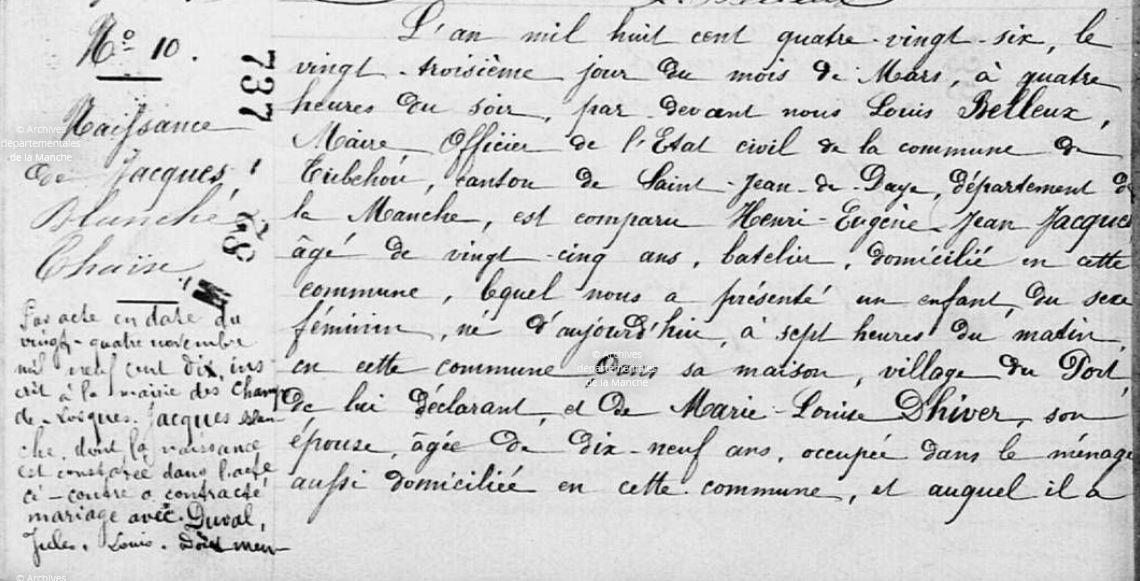 N° 10.
737
Naissance
de Jacques,
Blanche
Thaïse,
Par acte en date du
vingt-quatre novembre
mil neuf cent dix, ins
crit à la mairie des Champs
de-Losques. Jacques Blan
che, dont la naissance
est constatée dans l'acte
ci-contre a contracté
mariage avec Duval,
Jules. Louis.
L'an mil huit cent quatre-vingt-six, le
vingt-troisième jour du mois de Mars, à quatre
heures du soir, par devant nous Louis Belleux,
Maire Officier de l'Etat civil de la commune de
Tribehou, canton de Saint-Jean-de-Daye, département de
la Manche, est comparu Henri-Eugène Jean Jacques
âgé de vingt-cinq ans, batelier, domicilié en cette
commune, lequel nous a présenté un enfant du sexe
féminin, né d'aujourd'hui, à sept heures du matin,
en cette commune de sa maison, village du Port
de lui déclarant, et de Marie-Louise Dhiver, son
épouse, âgée de dix-neuf ans, occupée dans le ménage
aussi domiciliée en cette commune, et auquel il a
© Archives
départementales
de la Manche
© Archives
départementales
de la Manche
© Archives